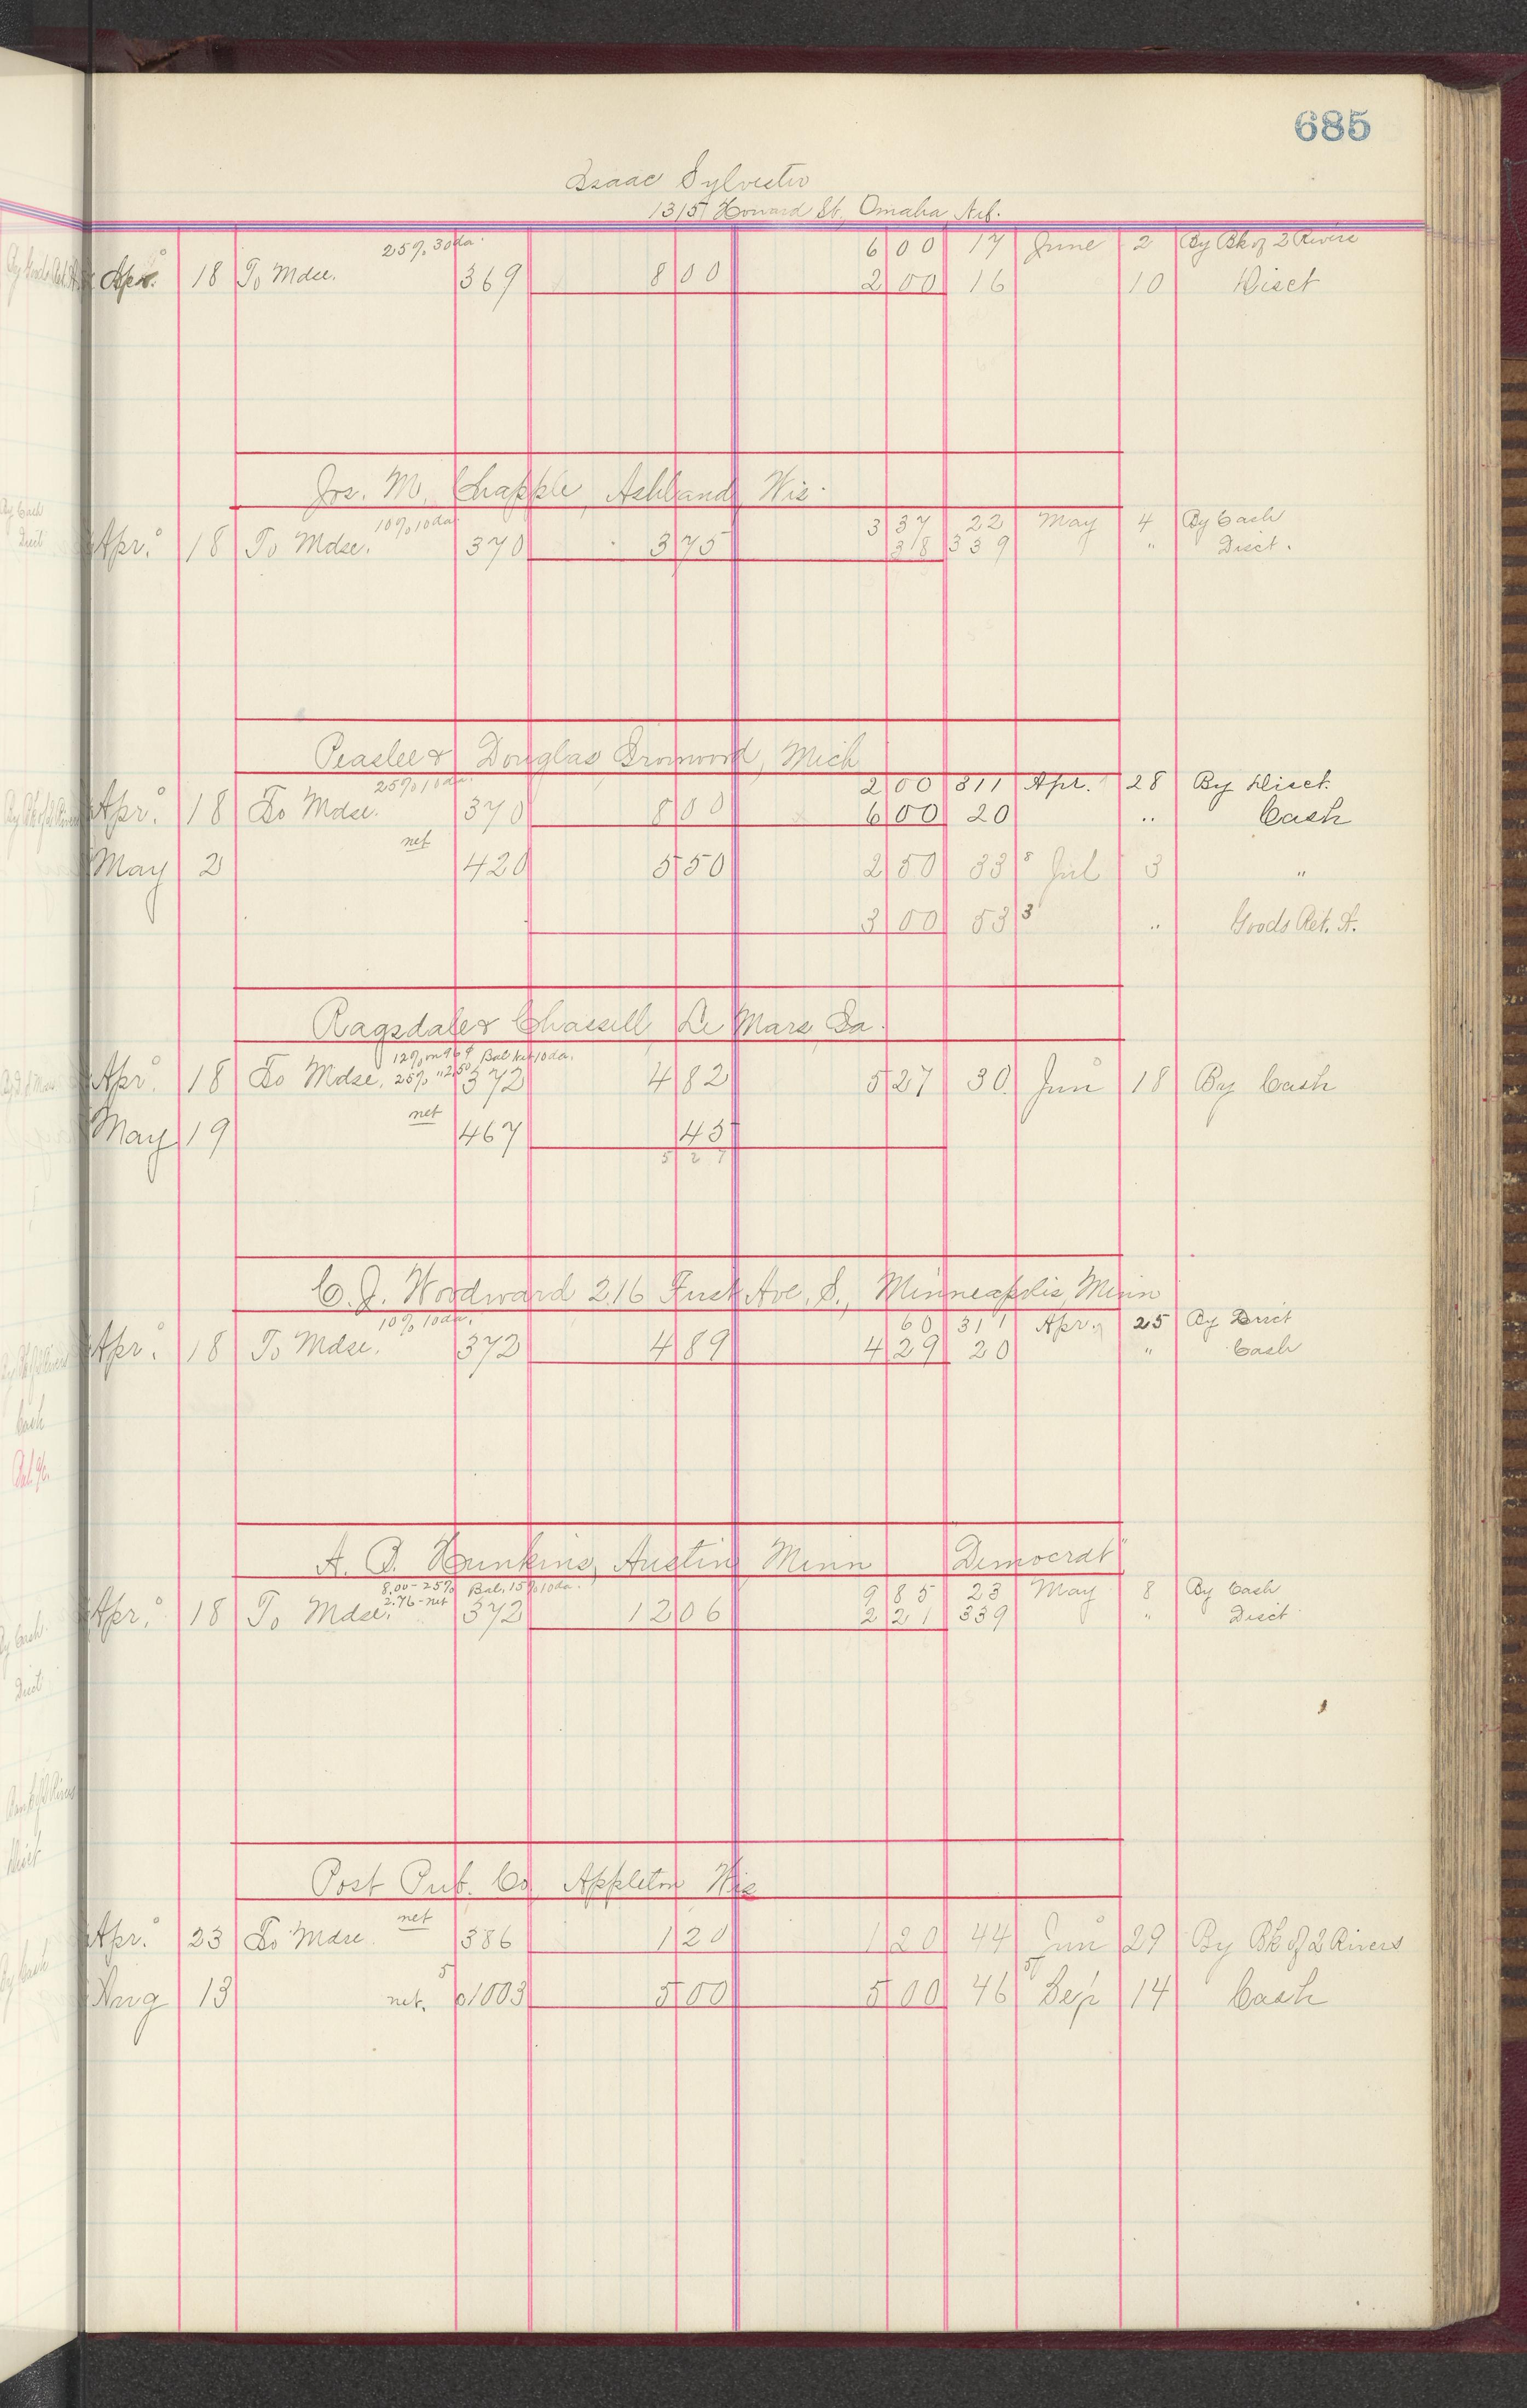 685
Isaac Sylvester
1315 Howard St. Omaha Neb.
25% 30 da. 6 00 17 June 2 By Bk of 2 Rivers
Apr. 18 To Mdse. 369 8 00 2 00 16 10 Disct
Jos. M. Chapple, Ashland Wis.
10% 10 da 3 37 22 May 4 By Cash
Apr. 18 To Mdse. 370 3 75 38 339 " Disct.
Peaslee & Douglas Ironwood, Mich
25% 10 da. 2 00 311 Apr. 28 By Disct.
Apr. 18 To Mdse. 370 8 00 6 00 20 " Cash
May 2 net 420 5 50 2 50 33 8 Jul 3 "
3 00 53 3 " Goods Ret. A.
Ragsdale & Chassell, Le Mars, Ia.
12% on 9 69 Bal net 10 da.
Apr. 18 To Mdse. 25% " 2.50 372 4 82 5 27 30 Jun 18 By Cash
May 19 net 467 45
5 2 7
C. J. Woodward 216 First Ave. S., Minneapolis, Minn
10% 10 da. 60 311 Apr. 25 By Disct
Apr. 18 To Mdse. 372 4 89 4 29 20 " Cash
A. B. Hunkins, Austin Minn Democrat"
8.00 - 25% Bal. 15% 10 da. 9 85 23 May 8 By Cash
2.76 - net
Apr. 18 To Mdse. 372 12 06 2 21 339 " Disct
Post Pub. Co. Appleton Wis
Apr. 23 To Mdse. net 386 1 20 1 20 44 Jun 29 By Bk of 2 Rivers
Aug 13 net. 5 1003 5 00 5 00 46 5 Sep 14 Cash